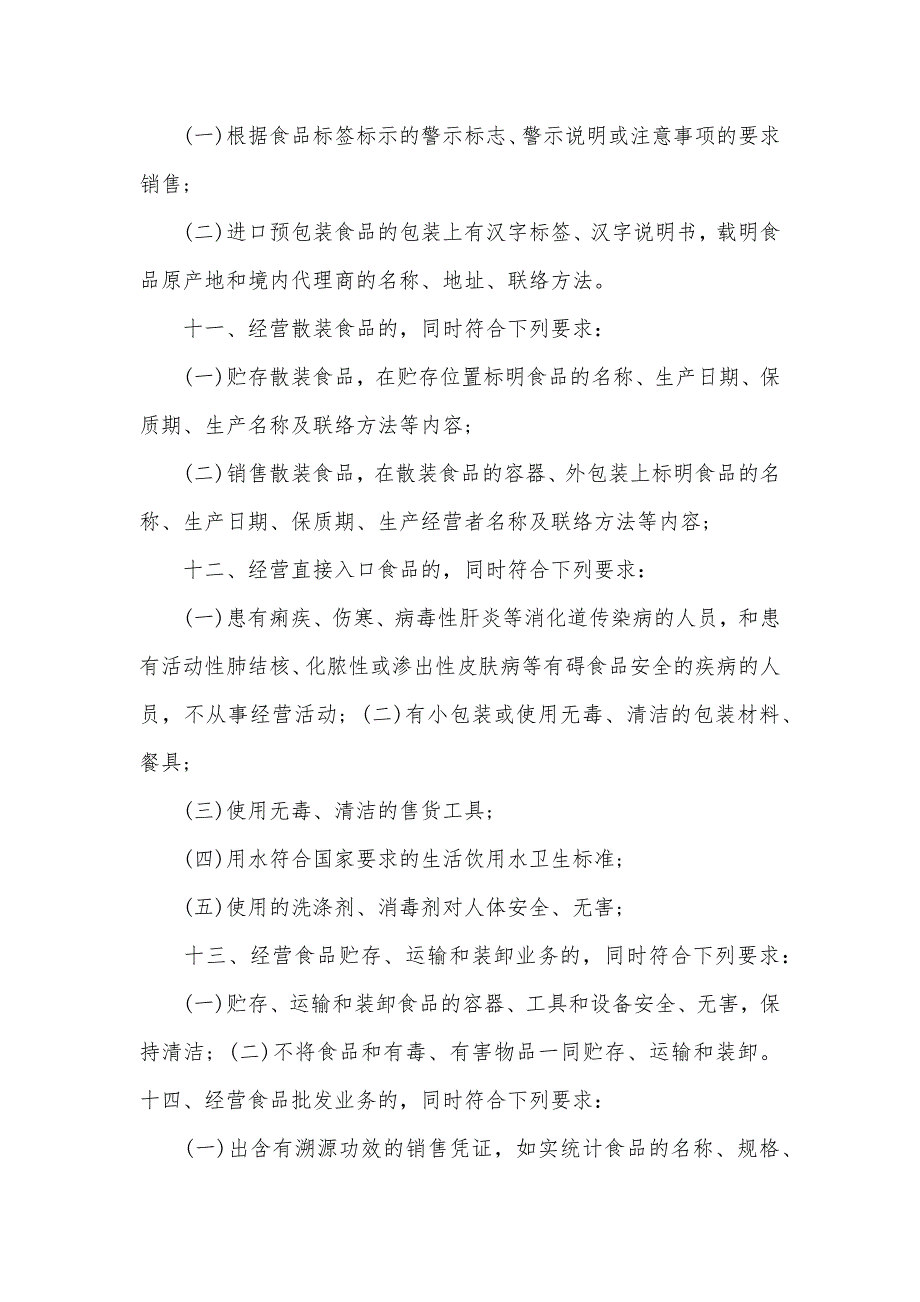 (一)根据食品标签标示的警示标志、警示说明或注意事项的要求
销售;
(二)进口预包装食品的包装上有汉字标签、汉字说明书，载明食
品原产地和境内代理商的名称、地址、联络方法。
十一、经营散装食品的，同时符合下列要求:
(一)贮存散装食品，在贮存位置标明食品的名称、生产日期、保
质期、生产名称及联络方法等内容;
(二)销售散装食品，在散装食品的容器、外包装上标明食品的名
称、生产日期、保质期、生产经营者名称及联络方法等内容;
十二、经营直接入口食品的，同时符合下列要求:
(一)患有痢疾、伤寒、病毒性肝炎等消化道传染病的人员，和患
有活动性肺结核、化脓性或渗出性皮肤病等有碍食品安全的疾病的人
员，不从事经营活动; (二)有小包装或使用无毒、清洁的包装材料、
餐具;
(三)使用无毒、清洁的售货工具;
(四)用水符合国家要求的生活饮用水卫生标准;
(五)使用的洗涤剂、消毒剂对人体安全、无害;
十三、经营食品贮存、运输和装卸业务的，同时符合下列要求:
(一)贮存、运输和装卸食品的容器、工具和设备安全、无害，保
持清洁; (二)不将食品和有毒、有害物品一同贮存、运输和装卸。
十四、经营食品批发业务的，同时符合下列要求:
(一)出含有溯源功效的销售凭证，如实统计食品的名称、规格、